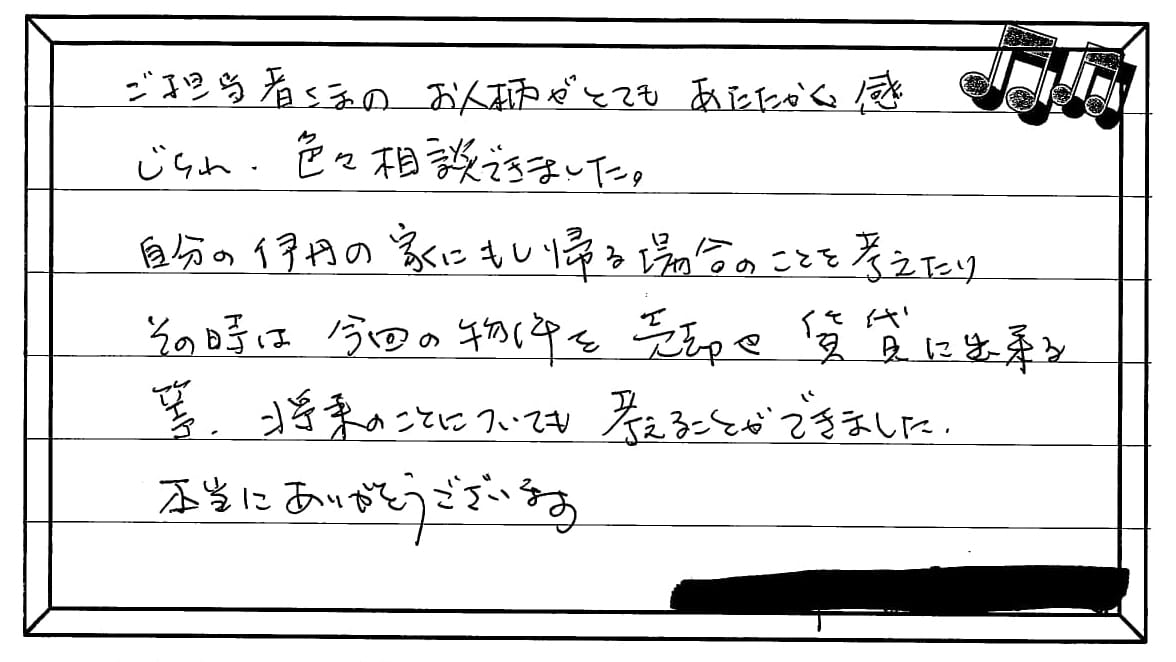 ご担当者さまの お人柄がとても あたたかく 感
じられ、色々相談できました。
自分の伊丹の家にもし帰る場合のことを考えたり
その時は 今回の物件を 売却や 賃貸に出来る
等、将来のことについても 考えることができました。
本当にありがとうございます